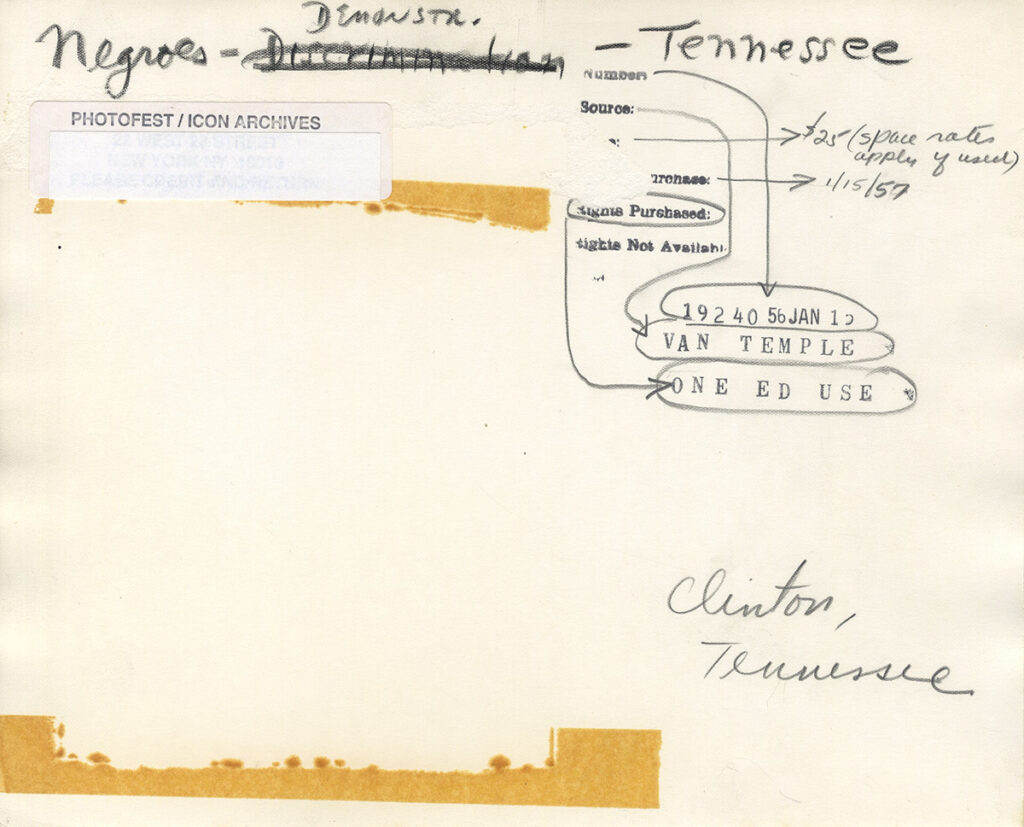 DEMONSTR.
Negroes - Discrimination - Tennessee
Number:
PHOTOFEST / ICON ARCHIVES
22 WEST 23 STREET
NEW YORK NY 10010
PLEASE CREDIT AND RETURN
Source:
$25 (space rates
apply if used)
urchase: 1/15/57
Rights Purchased:
Rights Not Availabl
19240 56 JAN 1
VAN TEMPLE
ONE ED USE
Clinton,
Tennessee